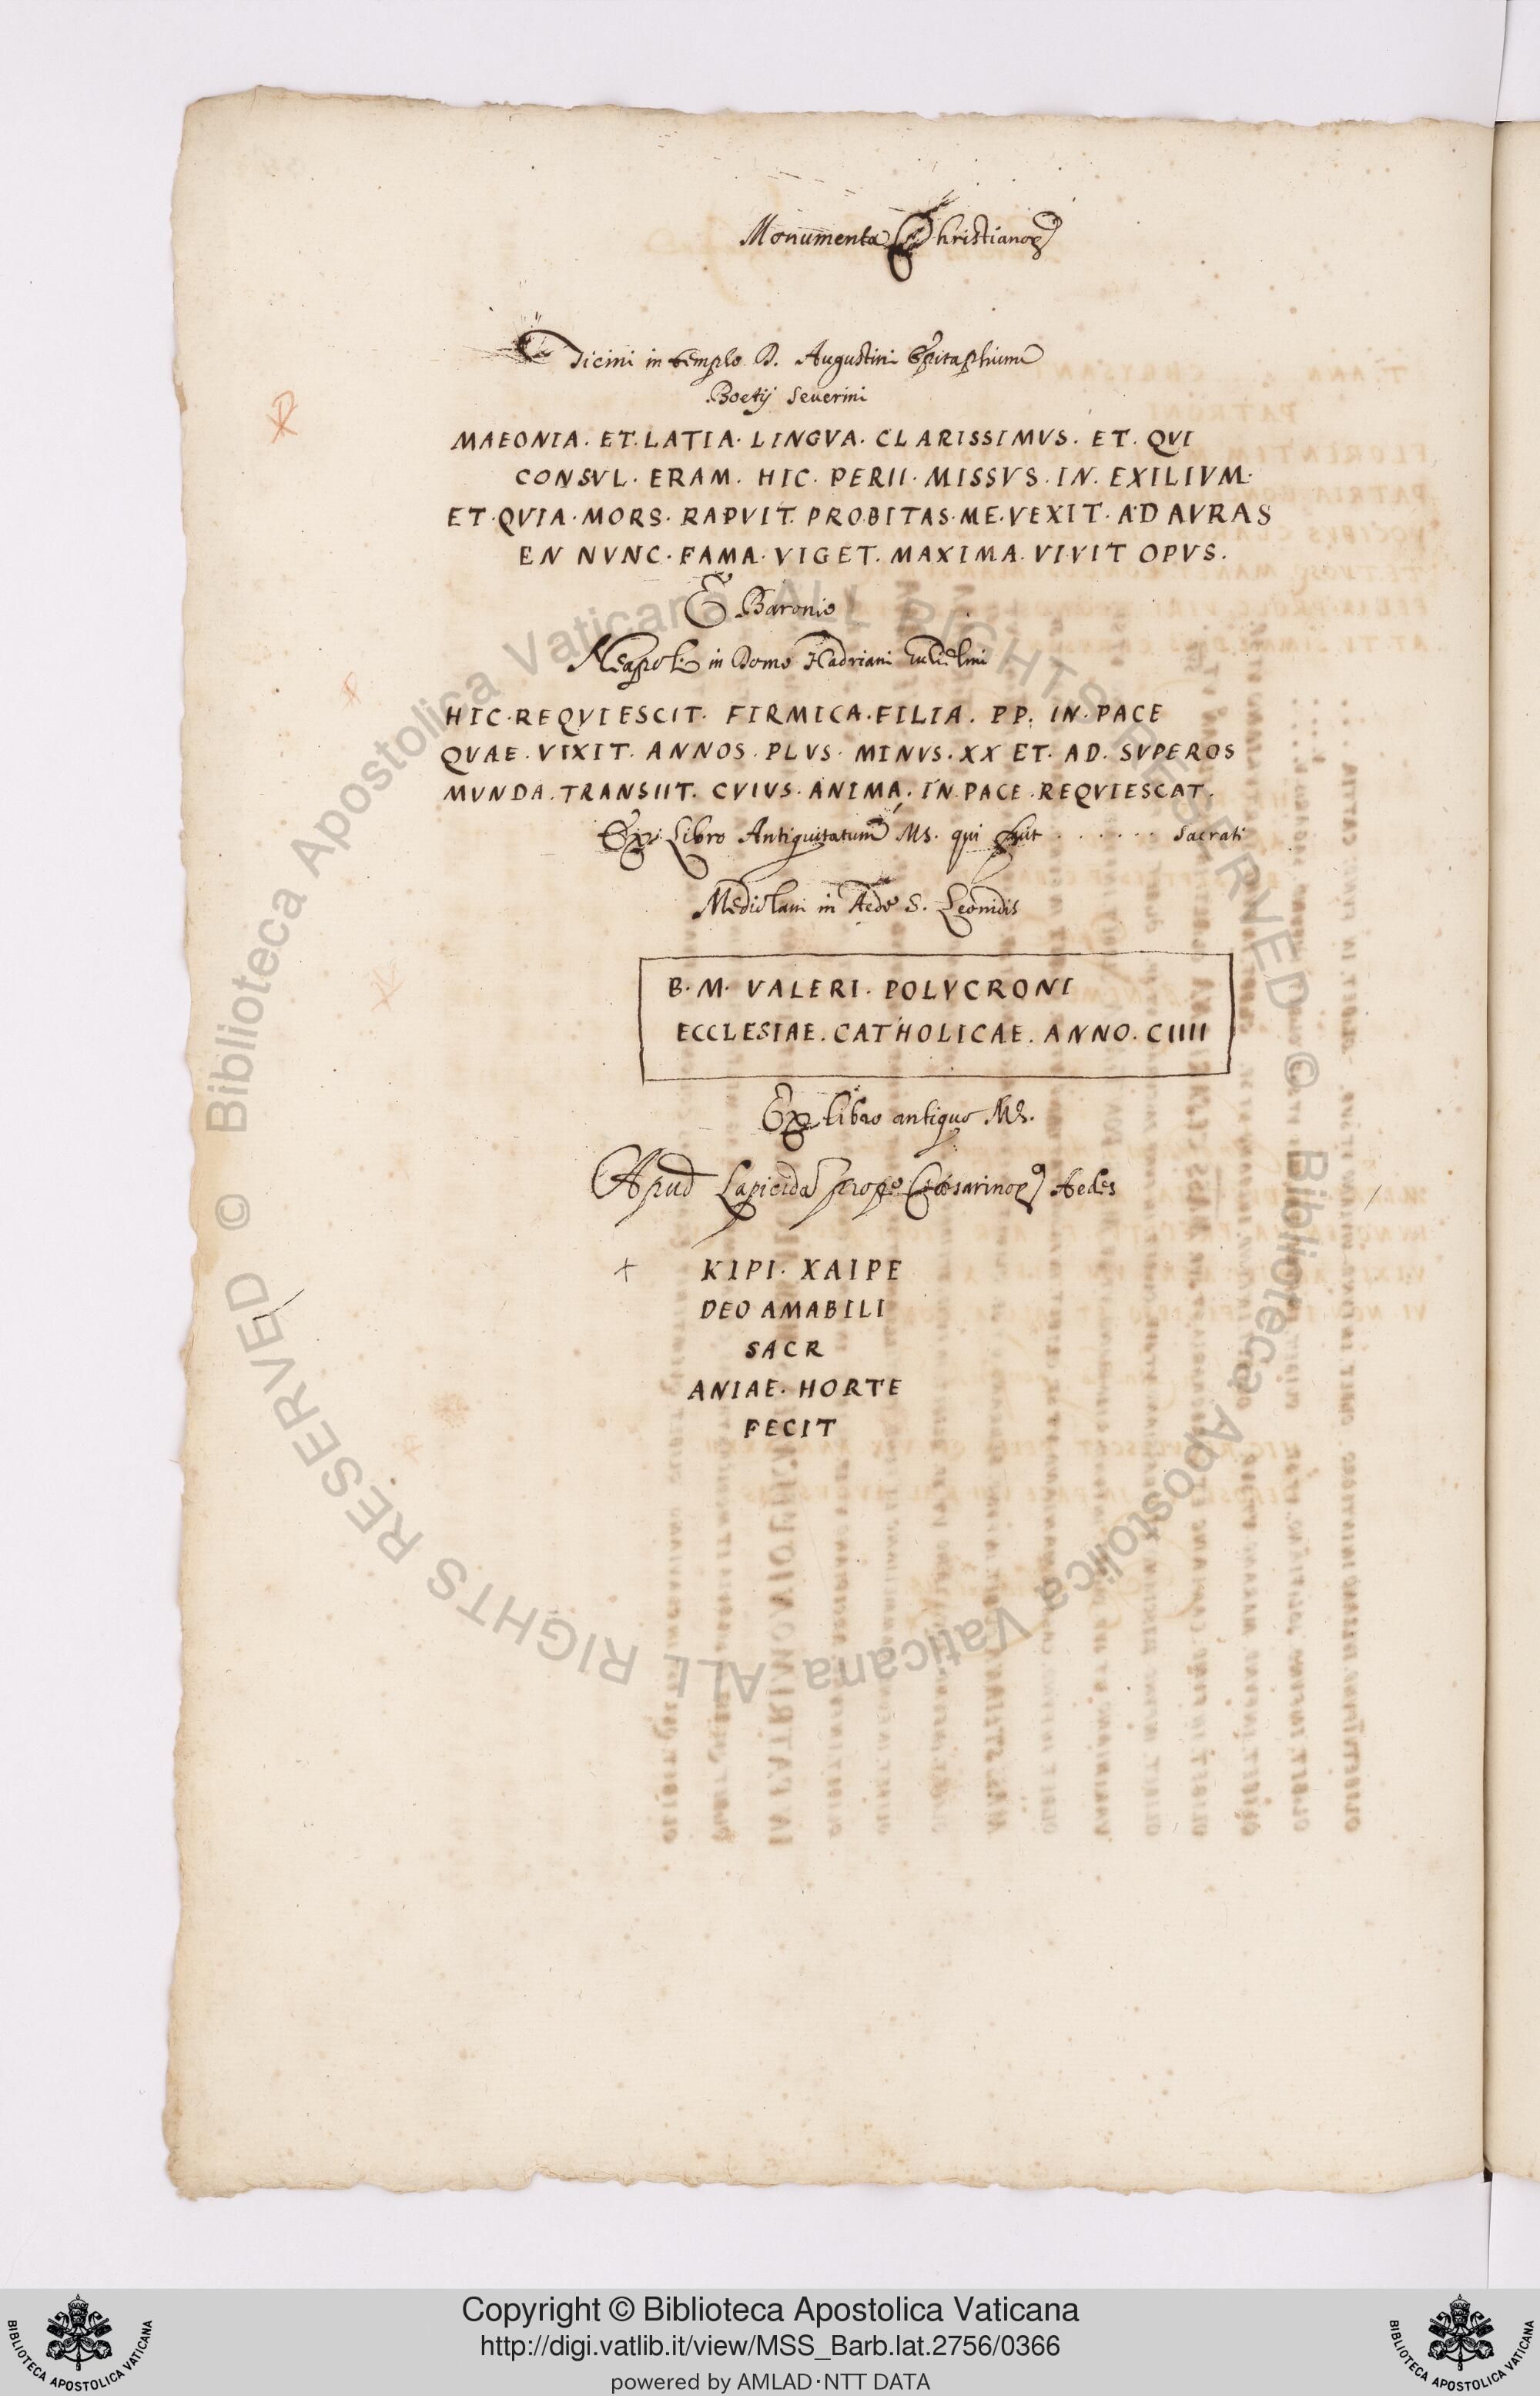 Monumenta Christianoꝝ
Ticini in templo D. Augustini Epitaphium
Boetij Severini
MAEONIA. ET. LATIA. LINGVA. CLARISSIMVS. ET. QVI
CONSVL. ERAM. HIC. PERII. MISSVS. IN. EXILIVM.
ET. QVIA. MORS. RAPVIT. PROBITAS. ME. VEXIT. AD AVRAS
EN NVNC. FAMA. VIGET. MAXIMA. VIVIT OPVS.
E Baronio
Neapoli in Domo Hadriani
HIC. REQVIESCIT. FIRMICA. FILIA. PP. IN. PACE
QVAE. VIXIT. ANNOS. PLVS. MINVS. XX ET. AD. SVPEROS
MVNDA. TRANSIIT. CVIVS. ANIMA. IN. PACE. REQVIESCAT.
Ex Libro Antiquitatum Ms. qui fuit . . . . . . Sacrati
Mediolani in Aede S. Leonidis
B. M. VALERI. POLVCRONI
ECCLESIAE. CATHOLICAE. ANNO. CIIII
Ex libro antiquo Ms.
Apud Lapicida prope Caesarinoꝝ Aedes
+ KIPI. XAIPE
DEO AMABILI
SACR
ANIAE. HORTE
FECIT
© Biblioteca Apostolica Vaticana ALL RIGHTS RESERVED © Biblioteca Apostolica Vaticana ALL RIGHTS RESERVED
Copyright © Biblioteca Apostolica Vaticana
http://digi.vatlib.it/view/MSS_Barb.lat.2756/0366
powered by AMLAD·NTT DATA
BIBLIOTECA APOSTOLICA VATICANA
BIBLIOTECA APOSTOLICA VATICANA